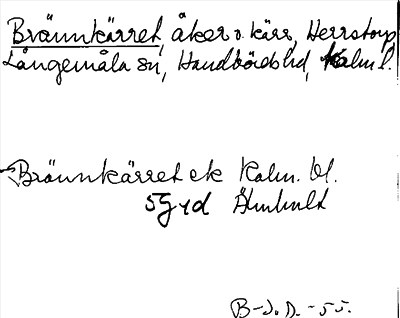 Brännkärret, åker o. kärr, Herrstorp
Långemåla sn, Handbörds hd, Kalm. l.
Brännkärret ek Kalm. bl.
5g yd Älmhult
B-J. D. -55.